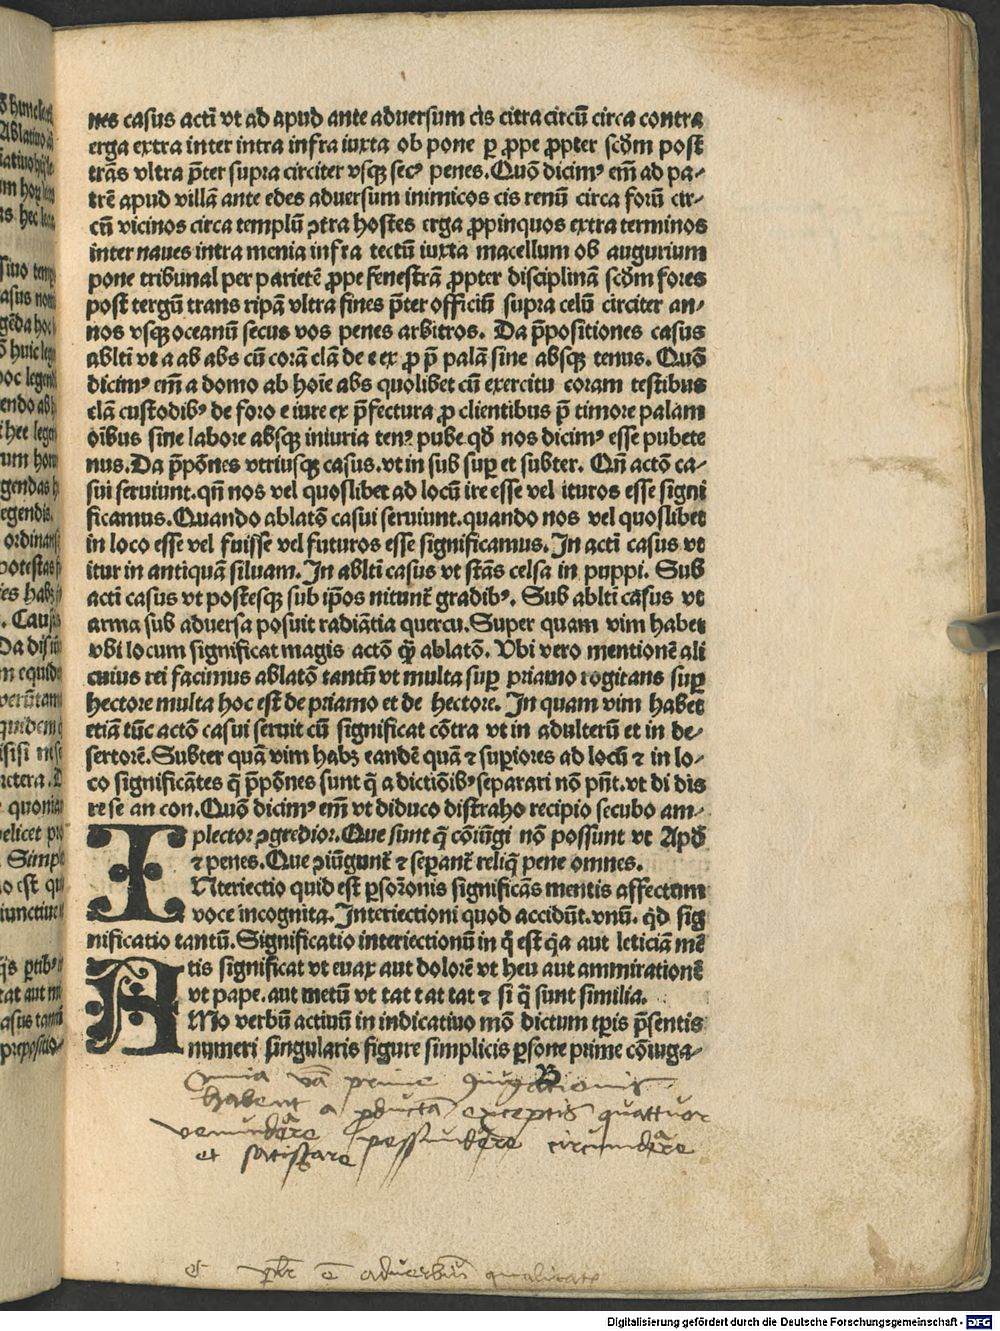 nes casus acti vt ad apud ante aduersum cis citra circū circa contra
erga extra inter intra infra iuxta ob pone ꝑ ꝓpe ꝓpter scḋm post
trās vltra p̄ter supra circiter vsqꝫ secꝰ penes. Quō dicimꝰ em̄ ad pa⸗
trē apud villā ante edes aduersum inimicos cis renū circa forū cir⸗
cū vicinos circa templū ↄtra hostes erga ꝓpinquos extra terminos
inter naues intra menia infra tectū iuxta macellum ob augurium
pone tribunal per parietē ꝓpe fenestrā ꝓpter disciplinā scḋm fores
post tergū trans ripā vltra fines p̄ter officiū supra celū circiter an⸗
nos vsqꝫ oceanū secus vos penes arbitros. Da p̄positiones casus
ablti vt a ab abs cū corā clā de e ex ꝓ p̄ palā sine absqꝫ tenus. Quō
dicimꝰ em̄ a domo ab hoīe abs quolibet cū exercitu coram testibus
clā custodibꝰ de foro e iure ex p̄fectura ꝓ clientibus p̄ timore palam
oībus sine labore absqꝫ iniuria tenꝰ pube qḋ nos dicimꝰ esse pubete
nus. Da p̄pōnes vtriusqꝫ casus. vt in sub suꝑ et subter. Qn̄ actō ca⸗
sui seruiunt. qn̄ nos vel quoslibet ad locū ire esse vel ituros esse signi
ficamus. Quando ablatō casui seruiunt. quando nos vel quoslibet
in loco esse vel fuisse vel futuros esse significamus. In acti casus vt
itur in antiquā siluam. In ablti casus vt stās celsa in puppi. Sub
acti casus vt postesqꝫ sub ip̄os nitunt̄ gradibꝰ. Sub ablti casus vt
arma sub aduersa posuit radiātia quercu. Super quam vim habet
vbi locum significat magis actō ꝙ̄ ablatō. Vbi vero mentionē ali
cuius rei facimus ablatō tantū vt multa suꝑ priamo rogitans suꝑ
hectore multa hoc est de priamo et de hectore. In quam vim habet
etiā tūc actō casui seruit cū significat cōtra vt in adulterū et in de⸗
sertorē. Subter quā vim habꝫ eandē quā ⁊ suꝑiores ad locū ⁊ in lo⸗
co significātes q̄ p̄pōnes sunt q̄ a dictiōibꝰ separari nō pn̄t. vt di dis
re se an con. Quō dicimꝰ em̄ vt diduco distraho recipio secubo am⸗
plector ↄgredior. Que sunt q̄ cōiūgi nō possunt vt Apḋ
⁊ penes. Que ↄiūgunt̄ ⁊ seꝑant̄ reliq̄ pene omnes.
INteriectio quid est ꝑs orōnis significās mentis affectum
voce incognita. Interiectioni quod accidūt. vnū. qḋ sig
nificatio tantū. Significatio interiectionū in q̊ est q̇a aut leticiā mē
tis significat vt euax aut dolorē vt heu aut ammirationē
vt pape. aut metū vt tat tat tat ⁊ si q̄ sunt similia.
AMo verbū actiuū in indicatiuo mō dictum tꝑis p̄sentis
numeri singularis figure simplicis ꝑsone prime cōiuga⸗
B
Omia v̄a prime ↄiugationis
habent a productā exceptis quattuor
venundare pessundare circundare
et satisdare
et ē aduerbiū qualitatis
Digitalisierung gefördert durch die Deutsche Forschungsgemeinschaft - DFG